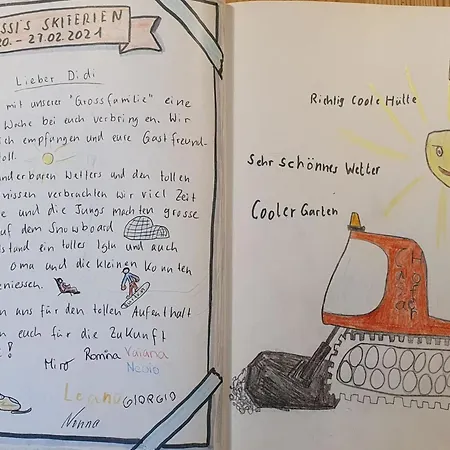 SSI'S SKIFERIEN
20. - 27.02.2021
Lieber Didi
mit unserer "Grossfamilie" eine
Woche bei euch verbringen. Wir
ich empfangen und eure Gastfreund-
toll.
nderbaren Wetters und den tollen
nissen verbrachten wir viel Zeit
e und die Jungs machten grosse
auf dem Snowboard
lstand ein tolles Iglu und auch
oma und die kleinen konnten
eniessen.
en uns für den tollen Aufenthalt
en euch für die Zukunft
!
Miro Romina Vaiana
Nevio
Leano GIORGIO
Nonna
Richtig Coole Hütte
Sehr schönnes Wetter
Cooler Garten